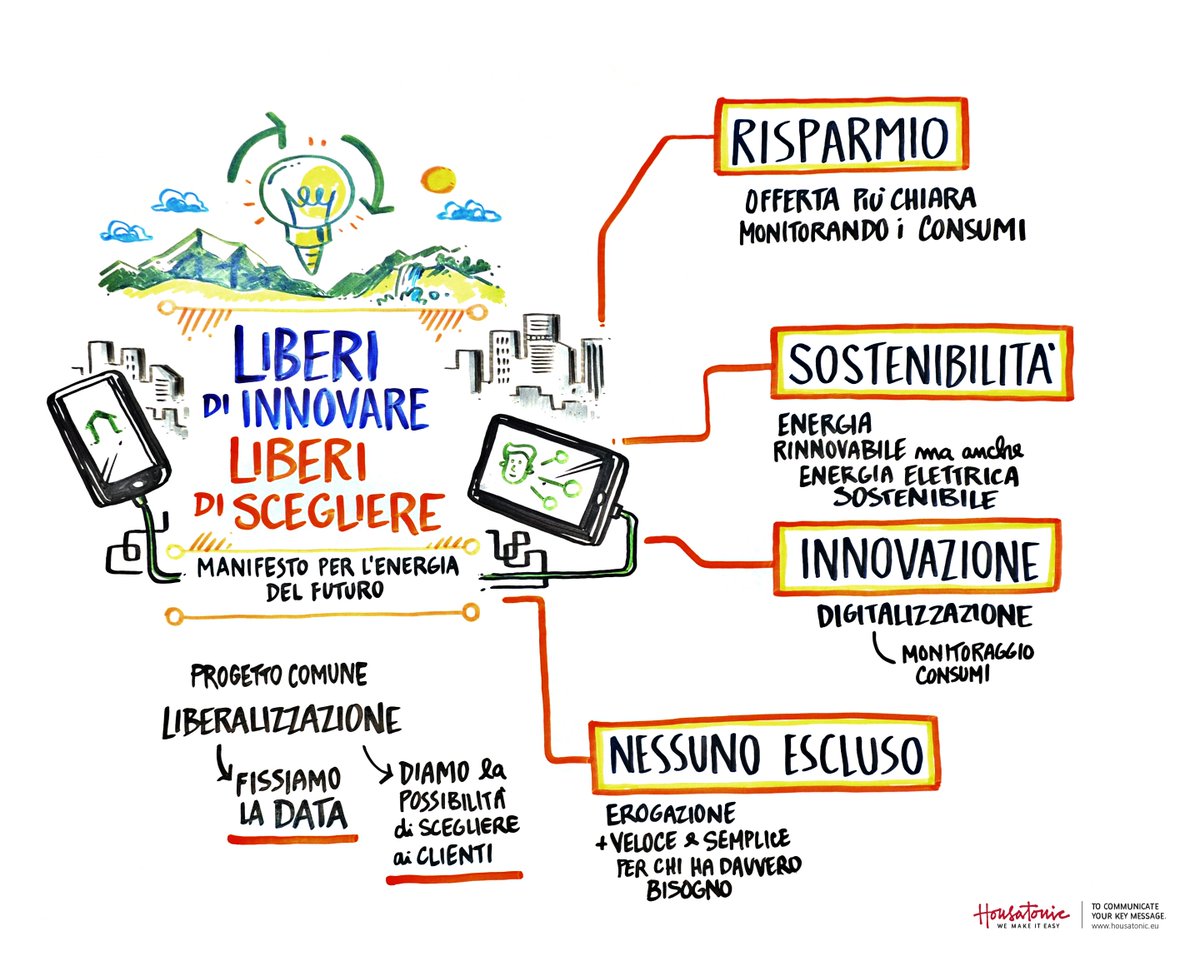 LIBERI
DI INNOVARE
LIBERI
DI SCEGLIERE
MANIFESTO PER L'ENERGIA
DEL FUTURO
PROGETTO COMUNE
LIBERALIZZAZIONE
FISSIAMO
LA DATA
DIAMO la
POSSIBILITÀ
di SCEGLIERE
ai CLIENTI
RISPARMIO
OFFERTA PIÙ CHIARA
MONITORANDO i CONSUMI
SOSTENIBILITÀ
ENERGIA
RINNOVABILE ma anche
ENERGIA ELETTRICA
SOSTENIBILE
INNOVAZIONE
DIGITALIZZAZIONE
MONITORAGGIO
CONSUMI
NESSUNO ESCLUSO
EROGAZIONE
+ VELOCE e SEMPLICE
PER CHI HA DAVVERO
BISOGNO
Housatonic
WE MAKE IT EASY
TO COMMUNICATE
YOUR KEY MESSAGE.
www.housatonic.eu